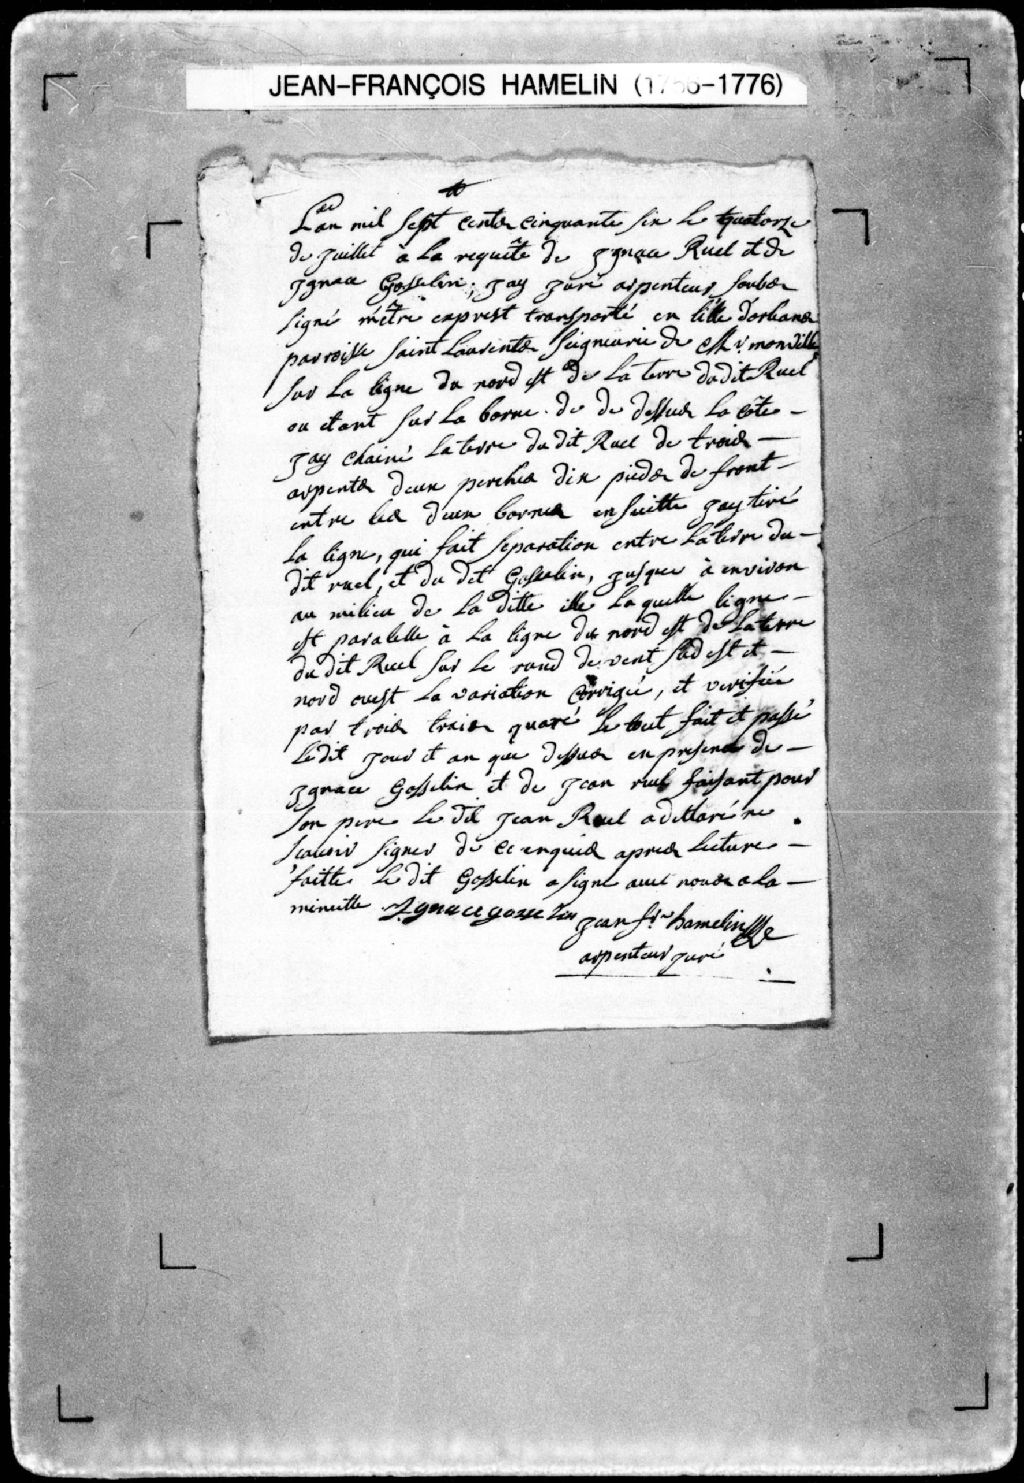 JEAN-FRANÇOIS HAMELIN (1756-1776)
Lan mil sept cents cinquante six le quatorze
de juillet à la requête de jgnace Ruel et de
jgnace Gosselin, jay juré arpenteur soubs
signé m'être exprest transporté en l'ille dorleans
parroisse saint Laurents seigneurie de Mr monville
sur la ligne du nord est de la terre dudit Ruel
ou etant sur la borne de de dessus la côte –
jay chainé la terre du dit Ruel de trois –
arpents deux perches dix pieds de front –
entre les deux bornes ensuitte jay tiré
la ligne, qui fait separation entre la terre du –
dit ruel, et du dit Gosselin, jusque à environ
au milieu de la ditte ille laquelle ligne –
est paralelle à la ligne du nord est de la terre
du dit Ruel sur le rund de vent sud est et –
nord ouest la variation corrigée, et verifiée
par trois trais quaré le tout fait et passé
ledit jour et an que dessus en presence de –
jgnace Gosselin et de jean ruel faisant pour
son pere le dit jean Ruel a dellaré ne
scauoir signer de ce enquis apres lecture –
faitte le dit Gosselin a signe auec nous a la –
minutte Jgnace gosselin
jean fr. hamelin
arpenteur juré